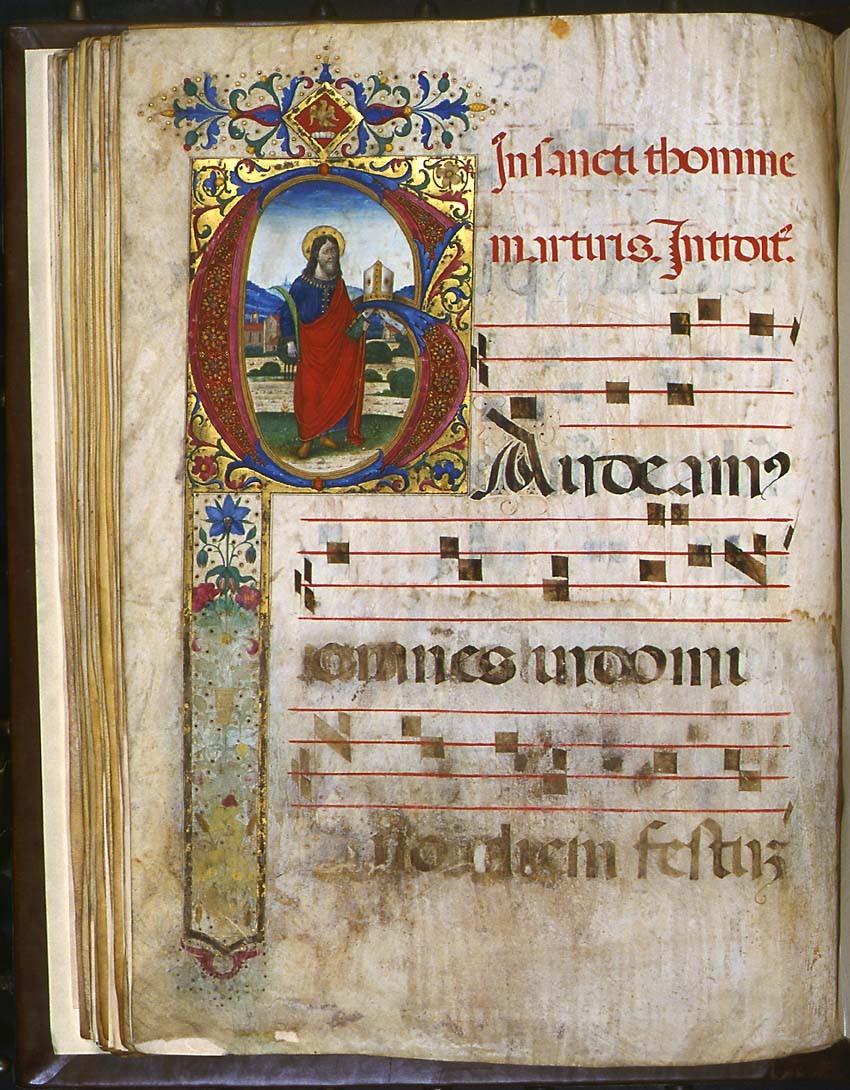 In sancti thomme
martiris. Introit.
GAudeamus
omnes in domi
no diem festuz